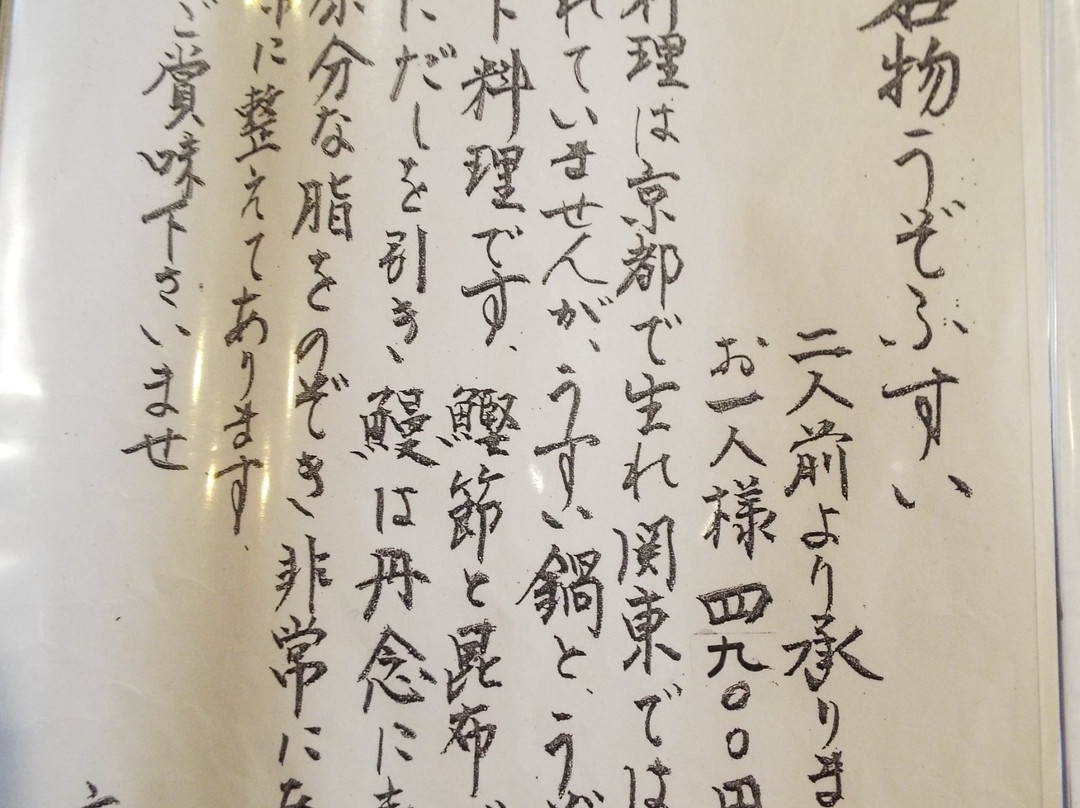 名物うぞふすい
二人前より承りま
お一人様 四九〇〇円
料理は京都で生れ関東では
れていませんが、うすい鍋と、う
料理です、鰹節と昆布
だしを引き、鰻は丹念に
余分な脂をのぞき非常に
に整えてあります。
ご賞味下さいませ